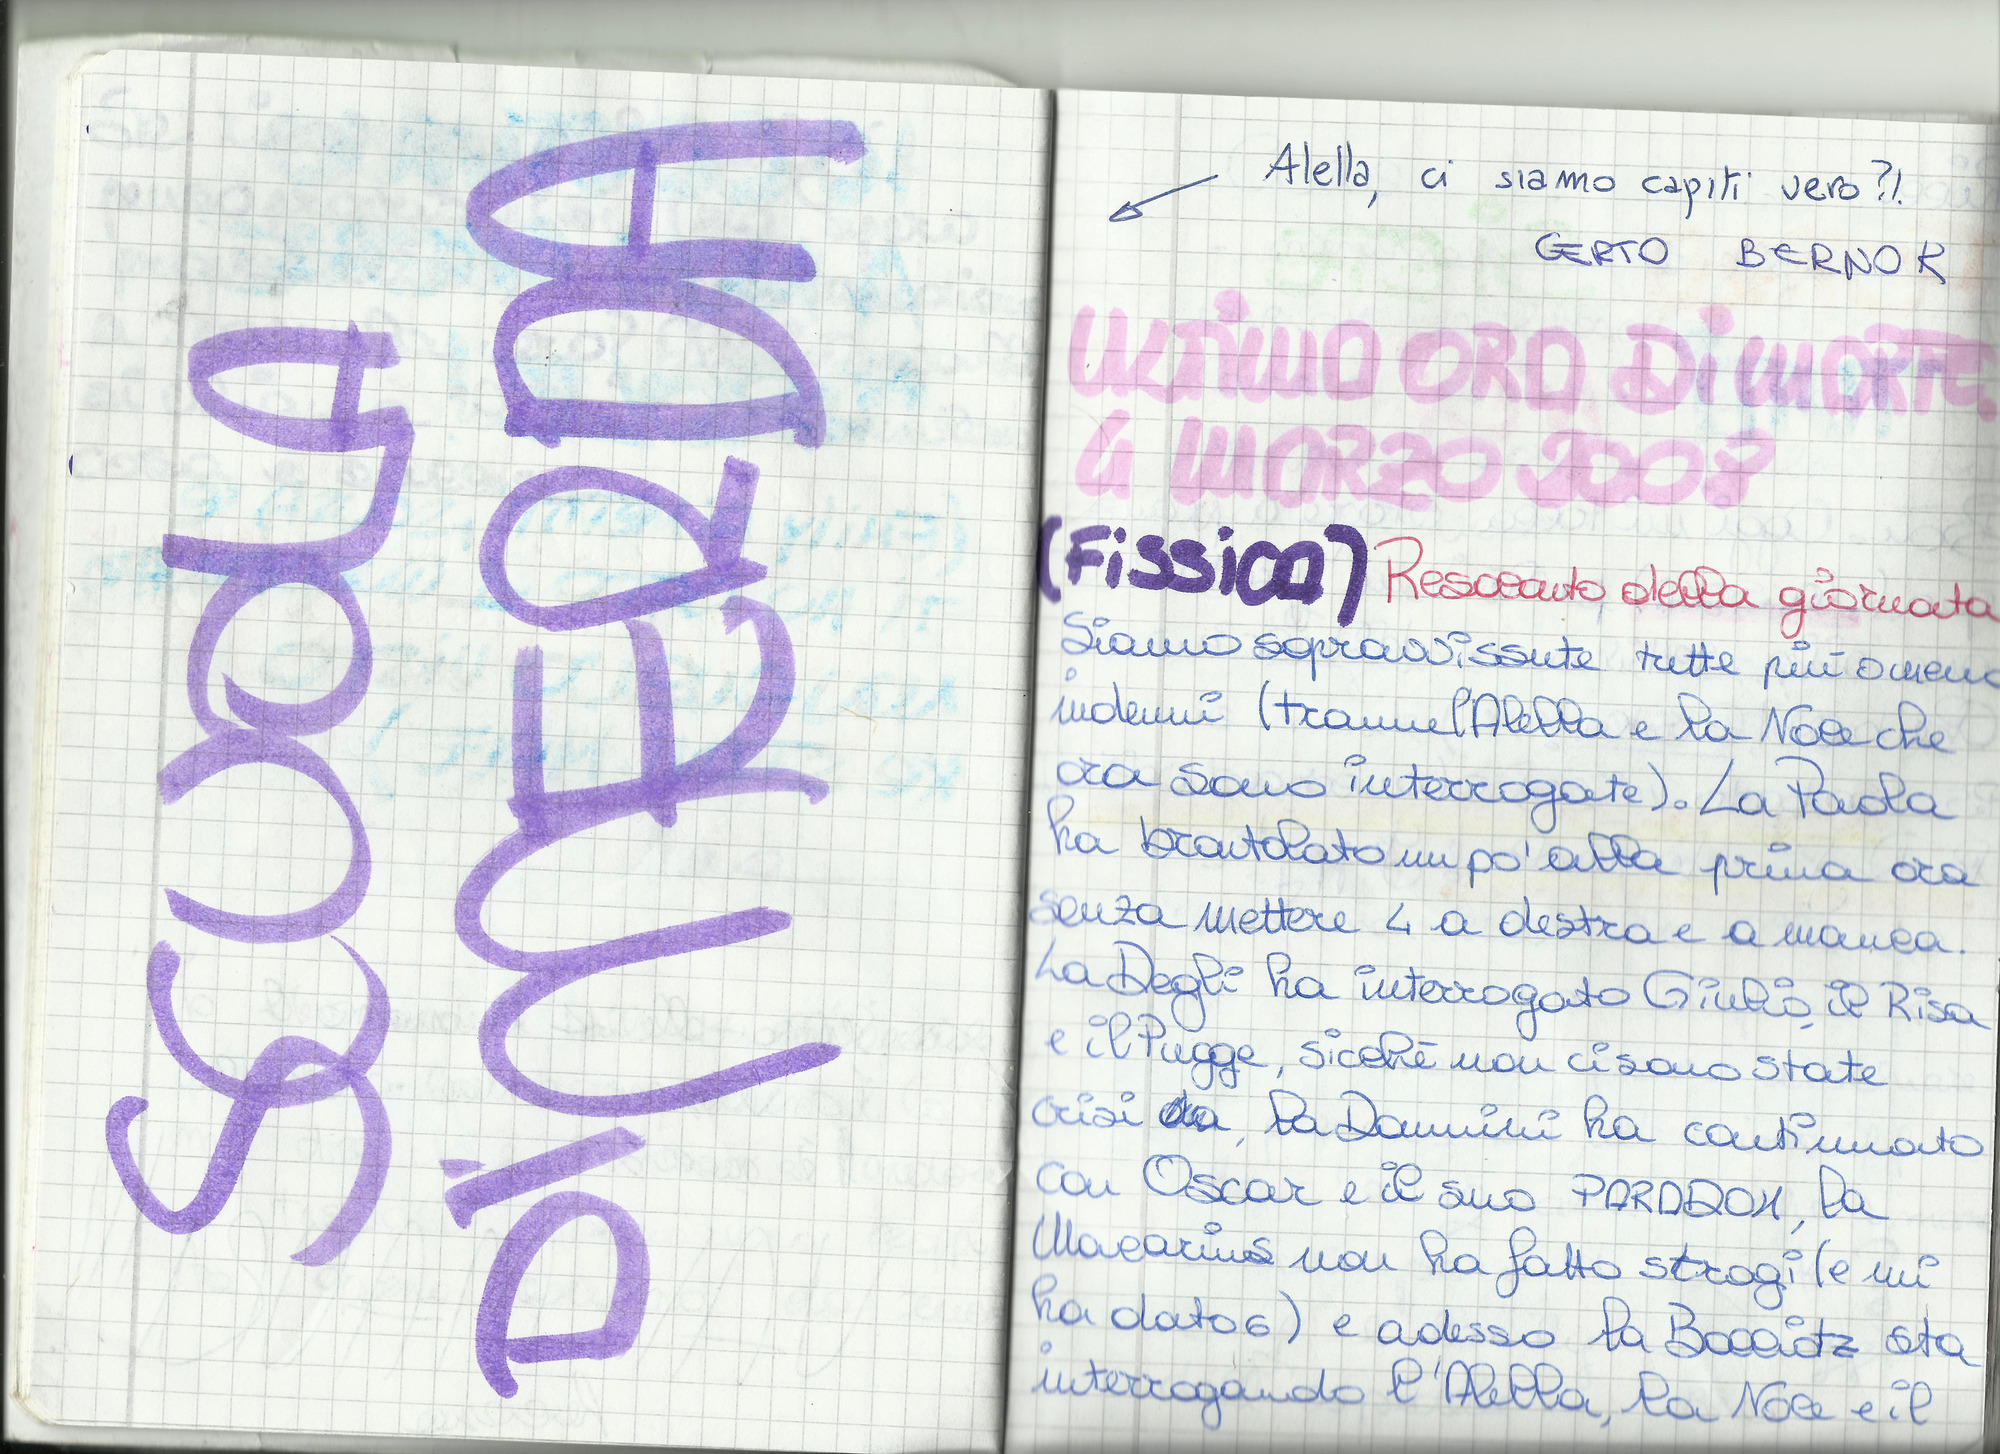 SCUOLA
DI MERDA
Alella, ci siamo capiti vero?!
GERTO BERNOR
ULTIMA ORA DI MORTE
4 MARZO 2007
(Fissica) Resoconto della giornata
Siamo sopravvissute tutte più o meno
indenni (tranne l'Alella e la Noce che
ora sono interrogate). La Paola
ha brontolato un po' alla prima ora
senza mettere 4 a destra e a manca.
La Degli ha interrogato Giulio, il Risa
e il Pugge, sicché non ci sono state
crisi, la Dannini ha continuato
con Oscar e il suo PARADOX, la
non ha fatto strogi (e mi
ha dato 6) e adesso la sta
interrogando l'Alella, la Noce e il